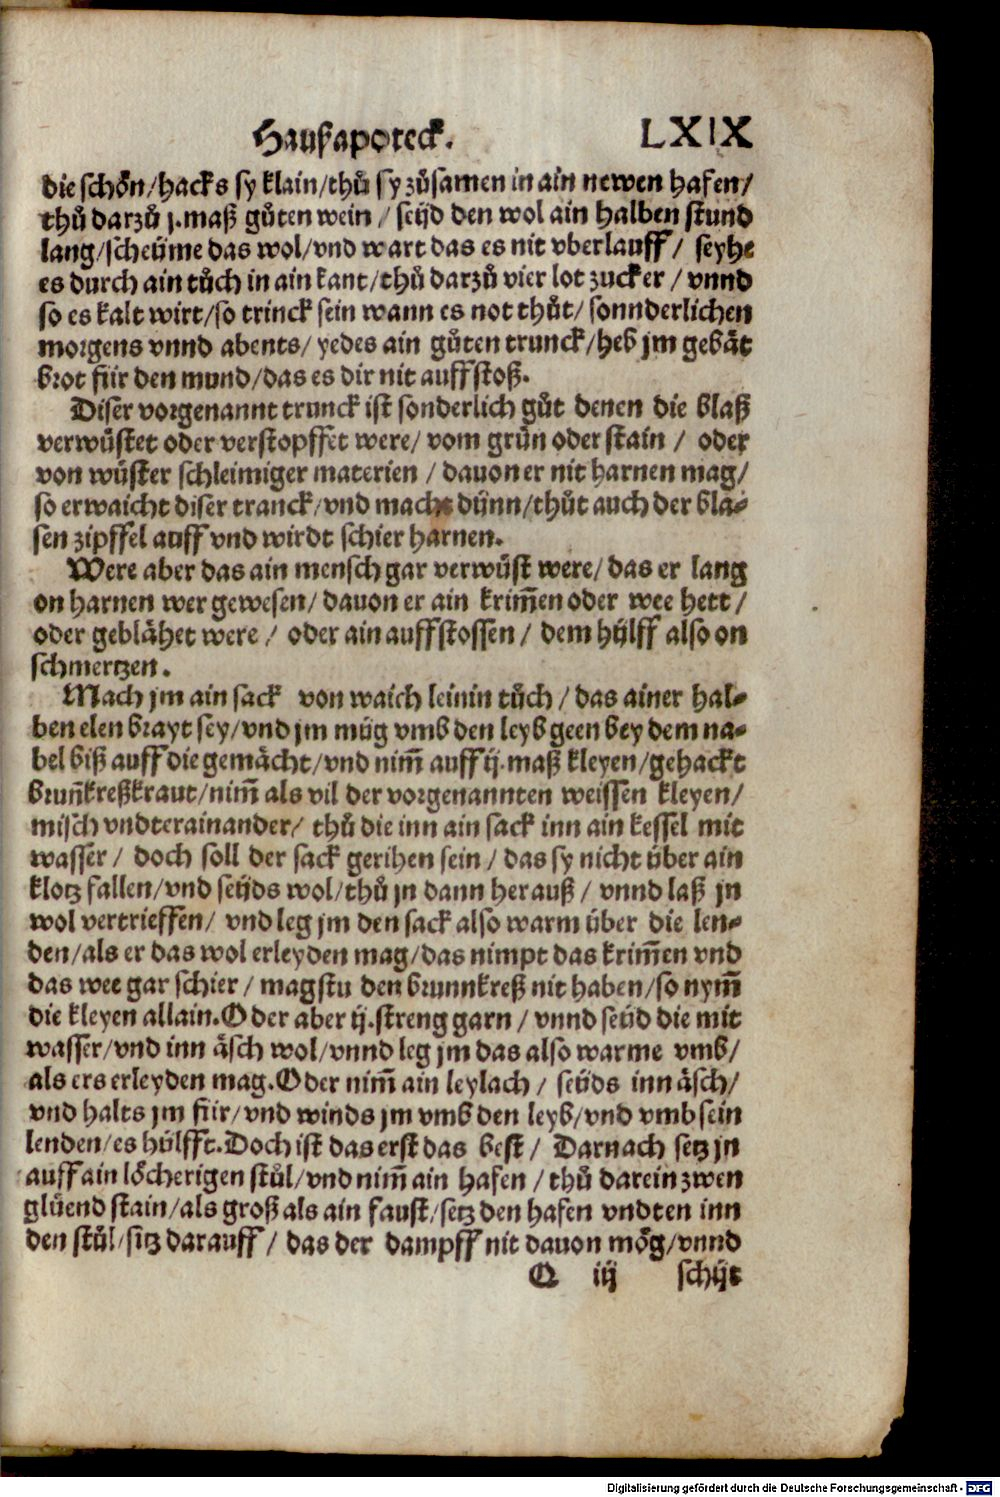 Haußapoteck. LXIX
die schoͤn/hacks sy klain/thuͦ sy zuͦsamen in ain newen hafen/
thuͦ darzuͦ j.maß guͦten wein / seüd den wol ain halben stund
lang/scheüme das wol/vnd wart das es nit vberlauff / seyhe
es durch ain tuͦch in ain kant/thuͦ darzuͦ vier lot zucker / vnnd
so es kalt wirt/so trinck sein wann es not thuͦt/ sonnderlichen
morgens vnnd abents/ yedes ain guͦten trunck/heb jm gebaͤt
brot für den mund/das es dir nit auffstoß.
Diser vorgenannt trunck ist sonderlich guͦt denen die blaß
verwuͤstet oder verstopffet were/ vom gruͤn oder stain / oder
von wuͤster schleimiger materien / dauon er nit harnen mag/
so erwaicht diser tranck/vnd macht dünn/thuͦt auch der bla⸗
sen zipffel auff vnd wirdt schier harnen.
Were aber das ain mensch gar verwuͤst were/ das er lang
on harnen wer gewesen/ dauon er ain krim̃en oder wee hett /
oder geblaͤhet were / oder ain auffstossen / dem hülff also on
schmertzen.
Mach jm ain sack von waich leinin tuͦch / das ainer hal⸗
ben elen brayt sey/vnd jm müg vmb den leyb geen bey dem na⸗
bel biß auff die gemaͤcht/vnd nim̃ auff ij.maß kleyen/gehackt
brun̄kreßkraut/nim̃ als vil der vorgenannten weissen kleyen/
misch vndterainander/ thuͦ die inn ain sack inn ain kessel mit
wasser / doch soll der sack gerihen sein / das sy nicht über ain
klotz fallen/vnd seüds wol/thuͦ jn dann herauß / vnnd laß jn
wol vertrieffen/ vnd leg jm den sack also warm über die len⸗
den/als er das wol erleyden mag/das nimpt das krim̃en vnd
das wee gar schier / magstu den brunnkreß nit haben/so nym̃
die kleyen allain.Oder aber ij.streng garn / vnnd seüd die mit
wasser/vnd inn aͤsch wol/vnnd leg jm das also warme vmb/
als ers erleyden mag.Oder nim̃ ain leylach / seüds inn aͤsch/
vnd halts jm für/vnd winds jm vmb den leyb/vnd vmb sein
lenden/es hülfft.Doch ist das erst das best / Darnach setz jn
auff ain loͤcherigen stuͦl/vnd nim̃ ain hafen / thuͦ darein zwen
gluͤend stain/als groß als ain faust/setz den hafen vndten inn
den stuͦl/sitz darauff / das der dampff nit dauon moͤg/vnnd
Q iij schüt
Digitalisierung gefördert durch die Deutsche Forschungsgemeinschaft - DFG